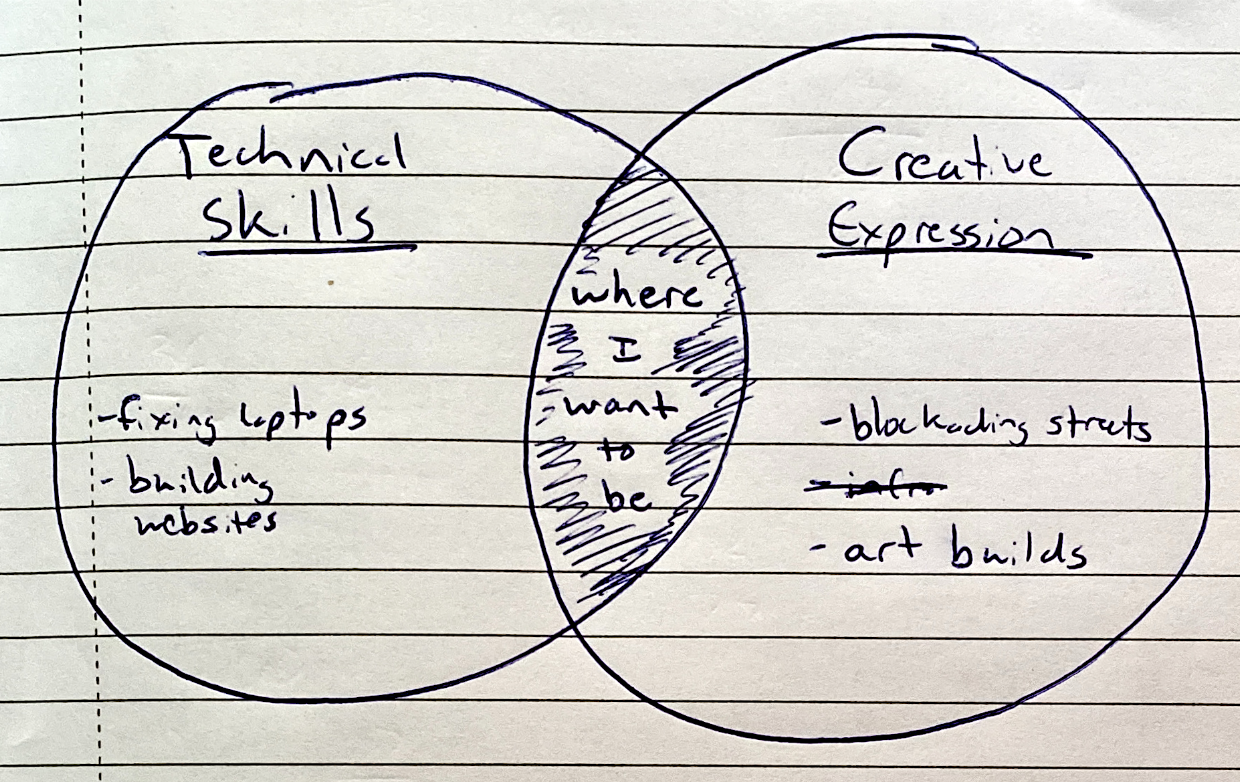 Technical
Skills
- fixing laptops
- building
websites
where
I
want
to
be
Creative
Expression
- blockading streets
- infra
- art builds